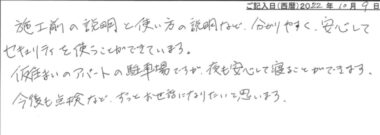 ご記入日(西暦)2022年10月9日
施工前の説明と使い方の説明など、分かりやすく、安心して
セキュリティを使うことができています。
仮住まいのアパートの駐車場ですが、夜も安心して寝ることができます。
今後も点検など、ずっとお世話になりたいと思います。